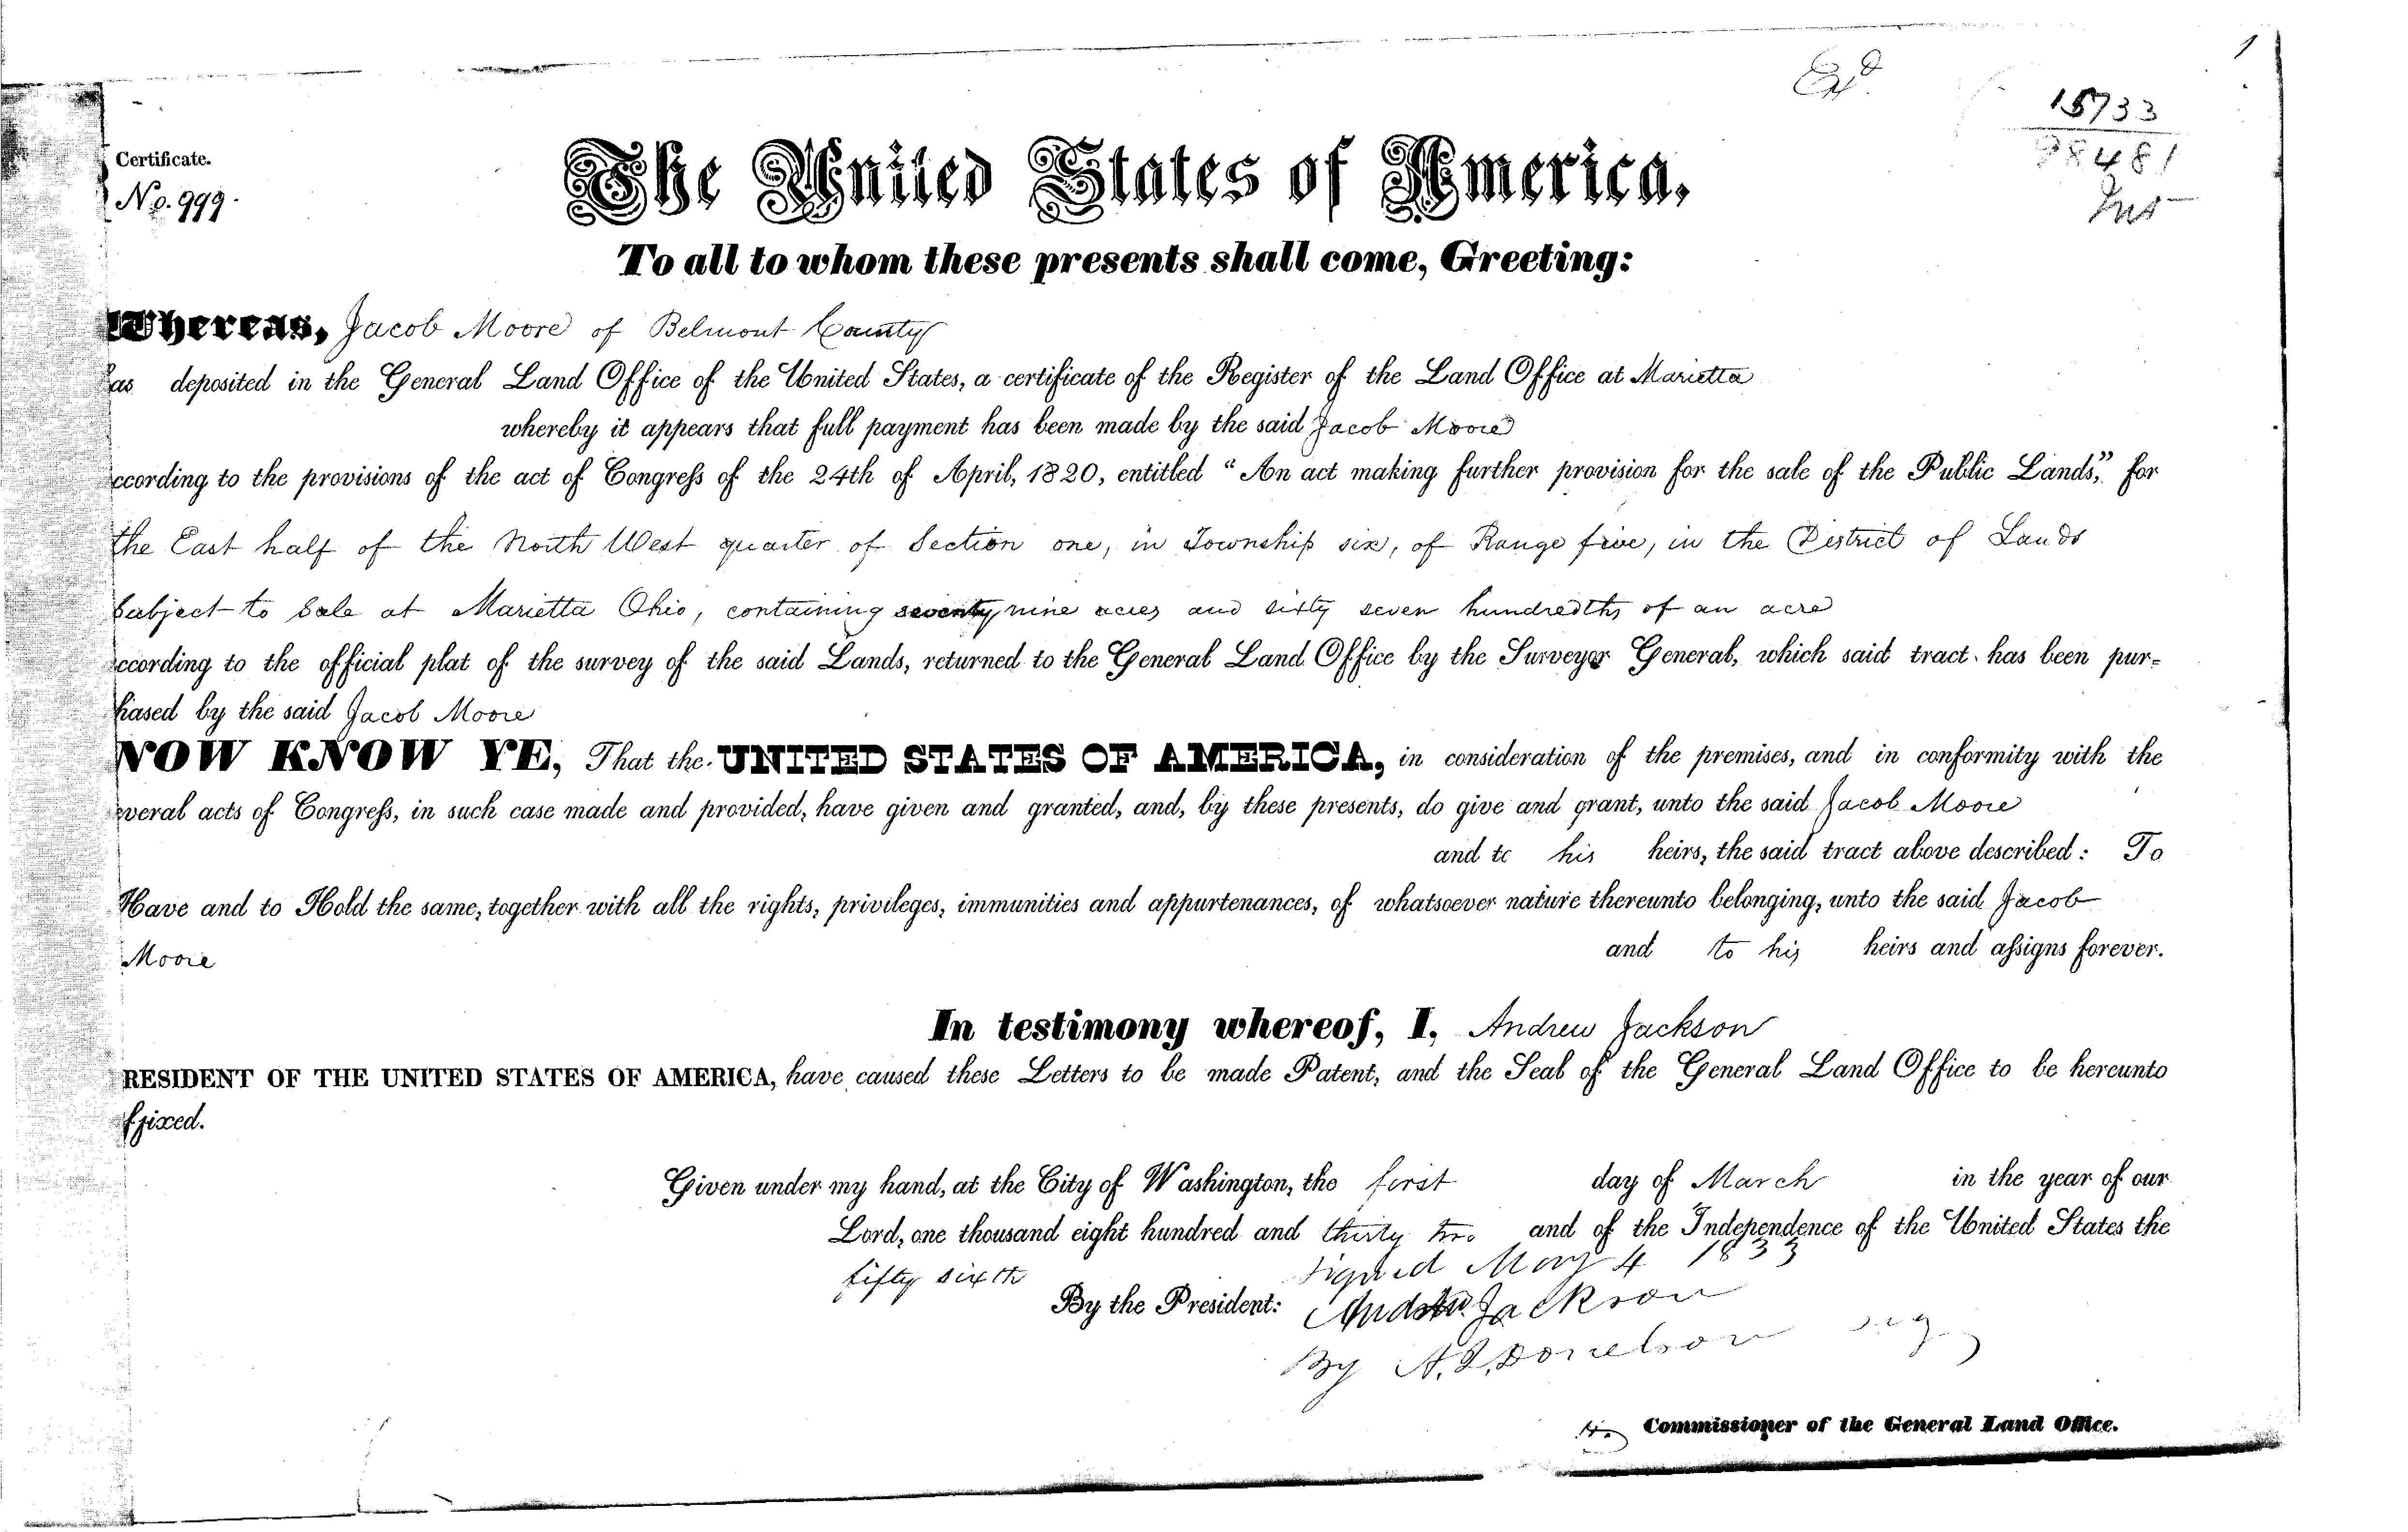 1
Exd
15733
8481
Certificate.
No. 999.
The United States of America,
To all to whom these presents shall come, Greeting:
Whereas, Jacob Moore of Belmont County
has deposited in the General Land Office of the United States, a certificate of the Register of the Land Office at Marietta
whereby it appears that full payment has been made by the said Jacob Moore
ccording to the provisions of the act of Congress of the 24th of April, 1820, entitled "An act making further provision for the sale of the Public Lands," for
the East half of the North West quarter of Section one, in Township six, of Range five, in the District of Lands
Subject to Sale at Marietta Ohio, containing seventy nine acres and sixty seven hundredths of an acre
ccording to the official plat of the survey of the said Lands, returned to the General Land Office by the Surveyor General, which said tract has been pur=
hased by the said Jacob Moore
NOW KNOW YE, That the UNITED STATES OF AMERICA, in consideration of the premises, and in conformity with the
everal acts of Congress, in such case made and provided, have given and granted, and, by these presents, do give and grant, unto the said Jacob Moore
and to his heirs, the said tract above described: To
Have and to Hold the same, together with all the rights, privileges, immunities and appurtenances, of whatsoever nature thereunto belonging, unto the said Jacob
Moore and to his heirs and assigns forever.
In testimony whereof, I, Andrew Jackson
RESIDENT OF THE UNITED STATES OF AMERICA, have caused these Letters to be made Patent, and the Seal of the General Land Office to be hereunto
ffixed.
Given under my hand, at the City of Washington, the first day of March in the year of our
Lord, one thousand eight hundred and thirty two and of the Independence of the United States the
fifty sixth Signed May 4 1833
By the President: Andrew Jackson
By A. J. Donelson Secy
Commissioner of the General Land Office.